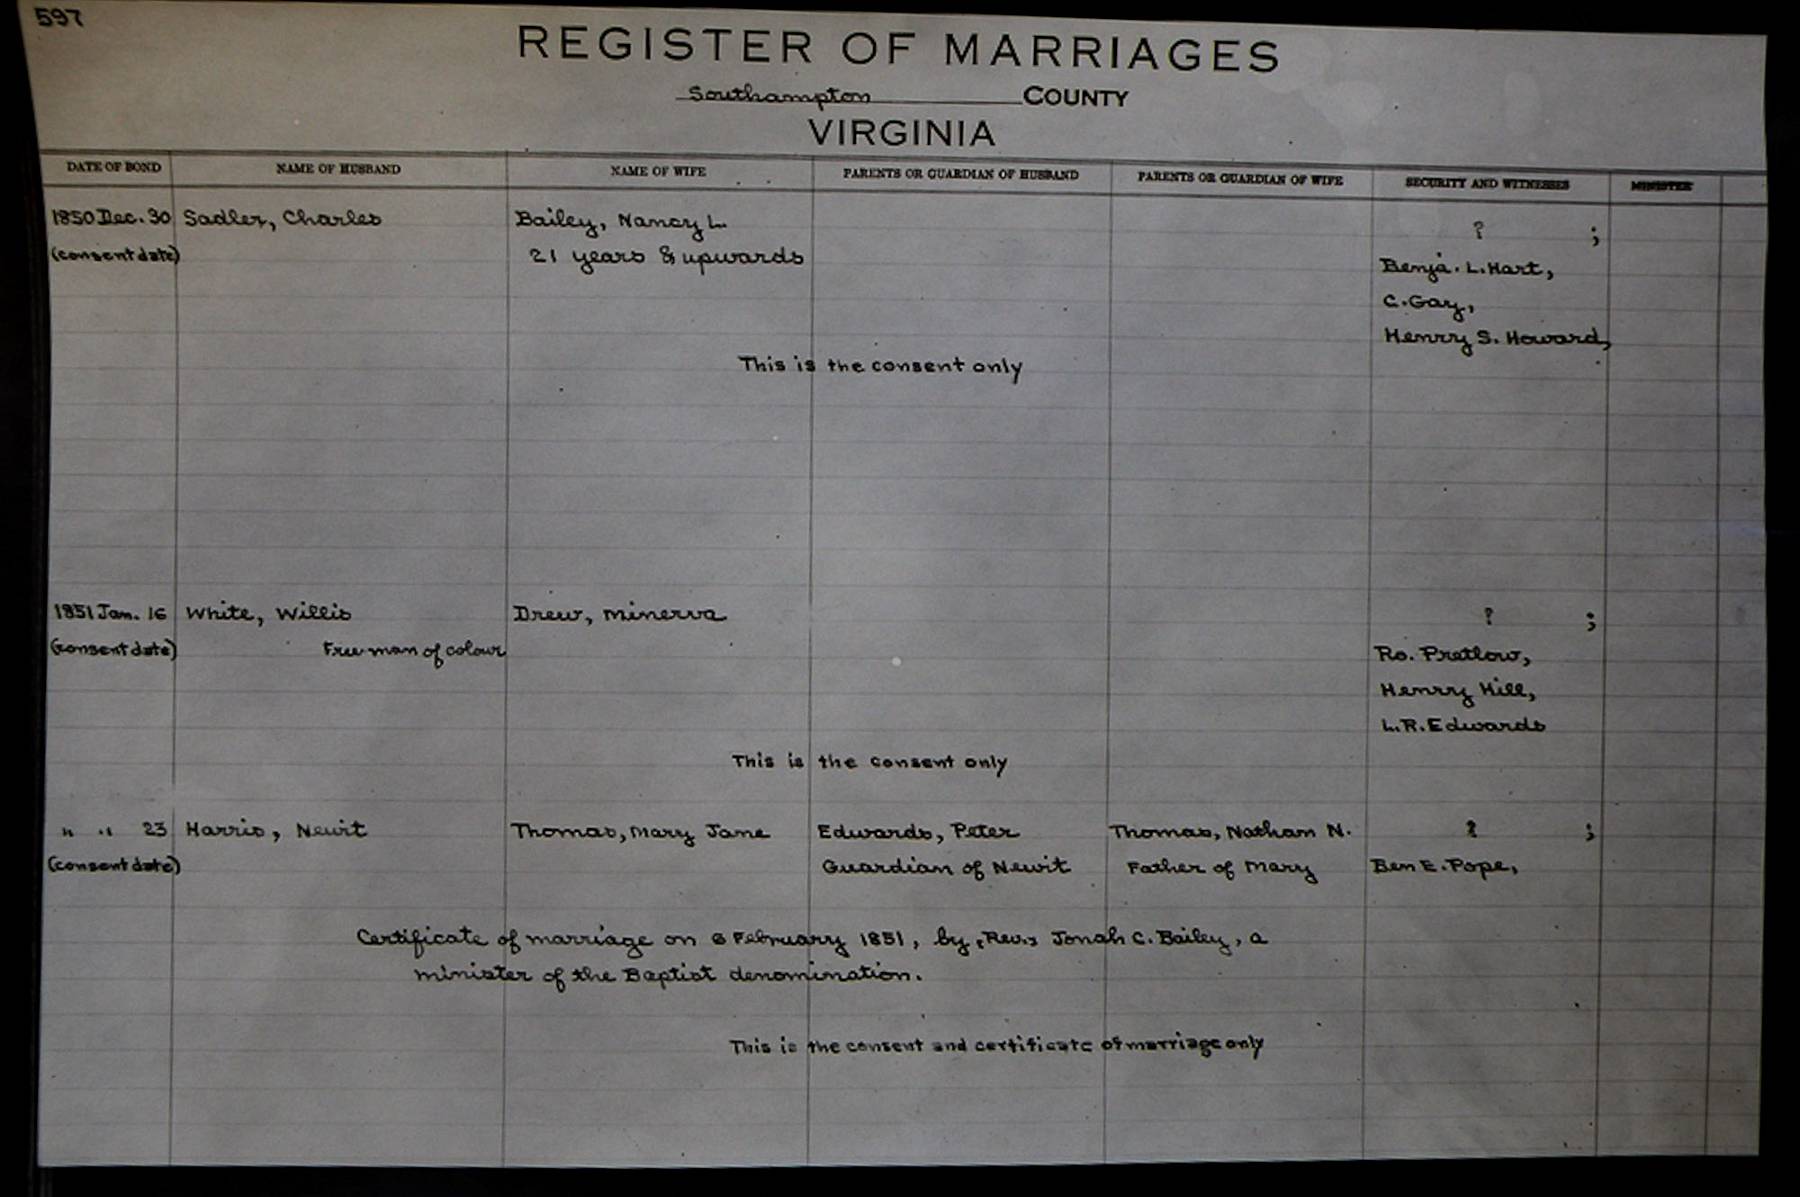 597
REGISTER OF MARRIAGES
Southampton COUNTY
VIRGINIA
DATE OF BOND NAME OF HUSBAND NAME OF WIFE PARENTS OR GUARDIAN OF HUSBAND PARENTS OR GUARDIAN OF WIFE SECURITY AND WITNESSES MINISTER
1850 Dec. 30 Sadler, Charles Bailey, Nancy L. ? ;
(consent date) 21 years & upwards Benja. L. Hart,
C. Gay,
Henry S. Howard,
This is the consent only
1851 Jan. 16 White, Willis Drew, Minerva ? ;
(consent date) Free man of colour Ro. Pretlow,
Henry Hill,
L. R. Edwards
This is the consent only
" " 23 Harris, Newit Thomas, Mary Jane Edwards, Peter Thomas, Nathan N. ? ;
(consent date) Guardian of Newit Father of Mary Ben E. Pope,
Certificate of marriage on 6 February 1851, by, Rev., Jonah C. Bailey, a
minister of the Baptist denomination.
This is the consent and certificate of marriage only